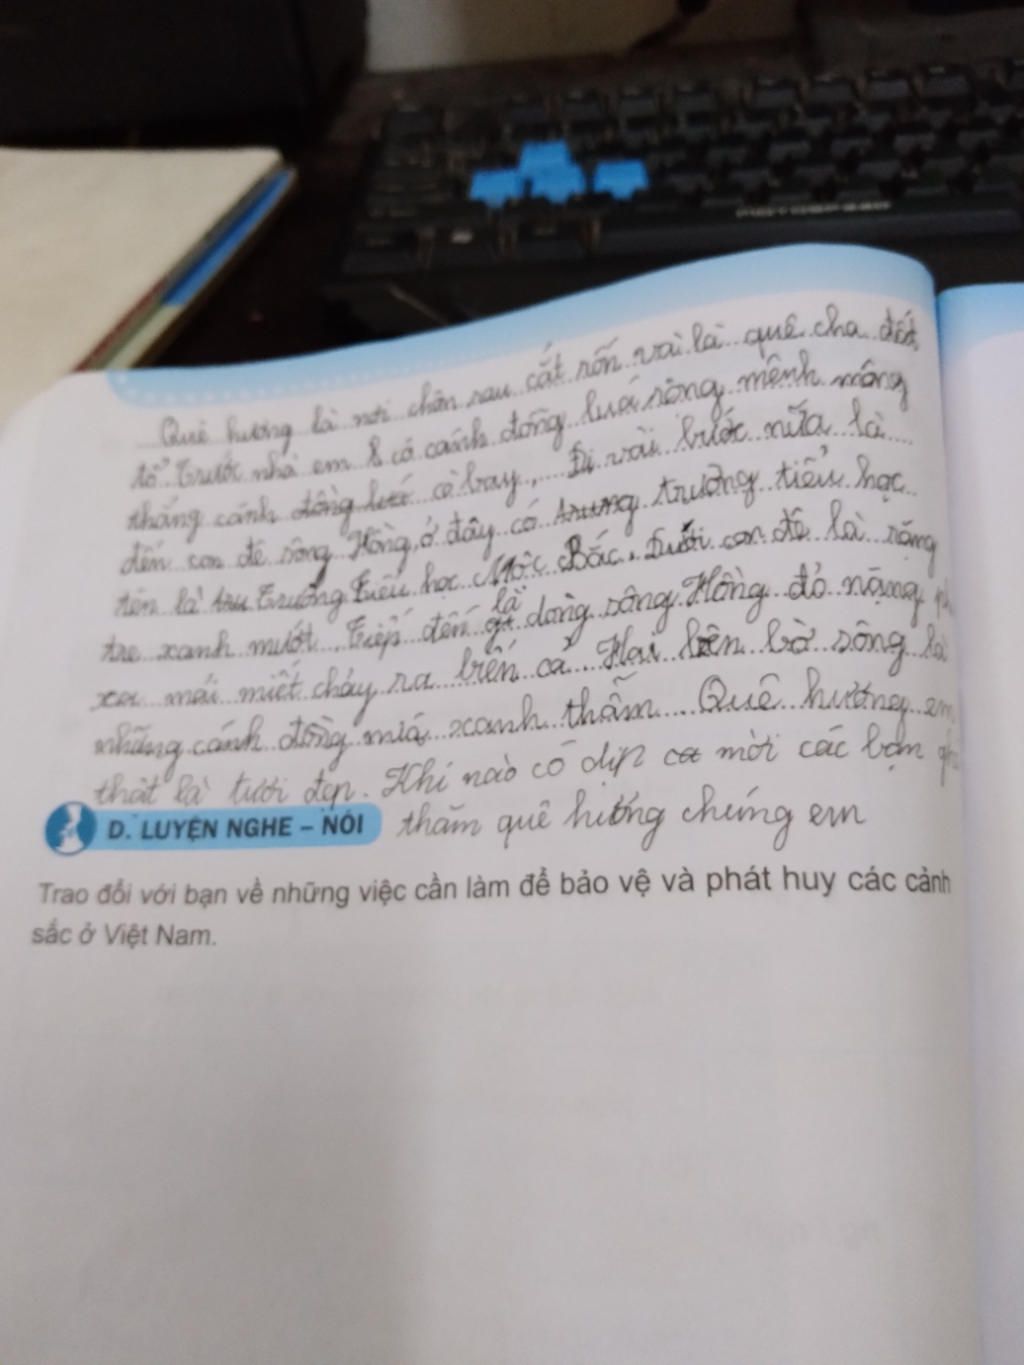 Quê hương là nơi chôn rau cắt rốn vài là quê cha đất
tổ. Trước nhà em có cánh đồng luá rông mênh mông
thẳng cánh cò bay, Đi vài bước nữa là
đến con đê sông Hồng, ở đây có trường tiểu học
tên là Trường Tiểu học Mộc Bắc. Dưới con đê là rặng
tre xanh mướt. Tiếp đến là dòng sông Hồng đỏ nặng
xa mải miết chảy ra biển cả. Hai bên bờ sông là
những cánh đồng miá xanh thẫm. Quê hương em
thật là tươi đẹp. Khi nào có dịp mời các bạn
thăm quê hương chúng em
D. LUYỆN NGHE – NÓI
Trao đổi với bạn về những việc cần làm để bảo vệ và phát huy các cảnh
sắc ở Việt Nam.